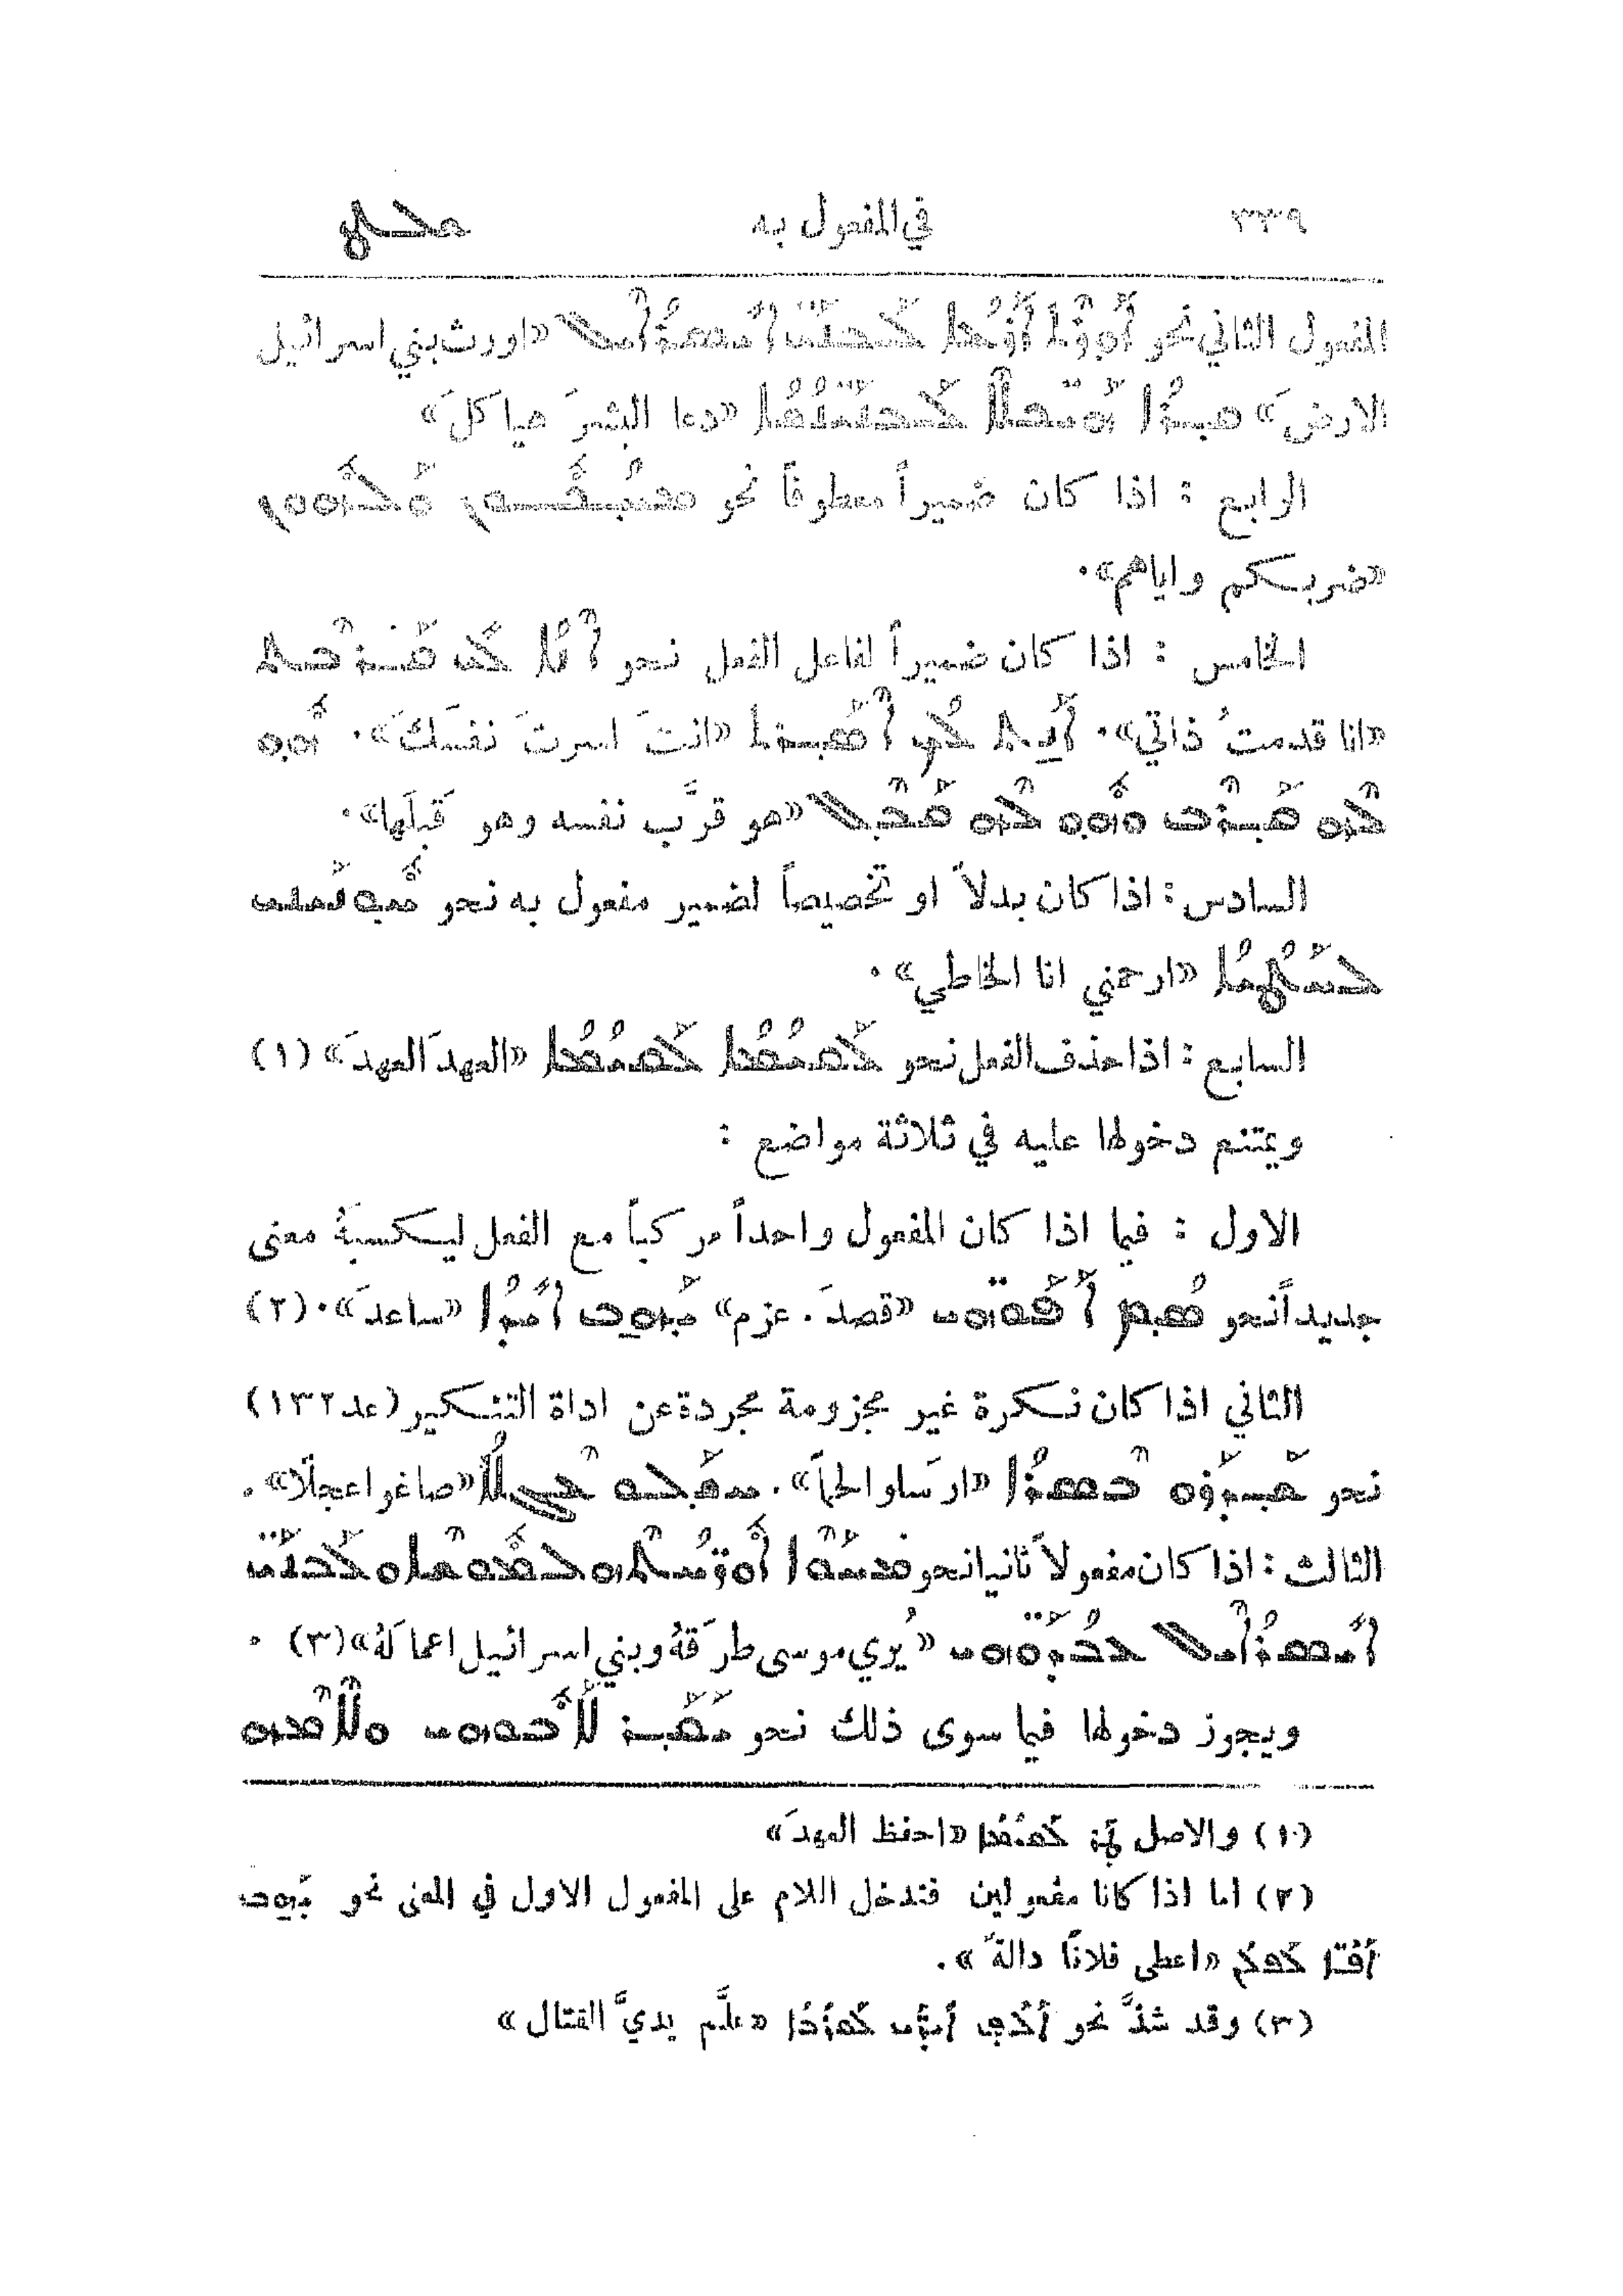 ٣٣٩ في المفعول به ܡܟܛ
المفعول الثاني نحو ܐܘܪܬ ܐܪܥܐ ܠܒܢܝ̈ ܐܝܣܪܐܝܠ «اورث بني اسرائيل
الارضَ» ܗܝ̈ܟܠܐ ܠܒܢܝ̈ܢܫܐ «دعا البشرَ هياكلَ»
الرابع : اذا كان ضميراً معطوفاً نحو ܘܠܗܘܢ
«ضربكم واياهم».
الخامس : اذا كان ضميراً لفاعل الفعل نحو ܐܢܐ ܠܝ ܩܪܒܬ
«انا قدمتُ ذاتي». ܐܢܬ ܠܟ ܐܣܝܪܬ «انتَ اسرتَ نفسَكَ». ܗܘ
ܠܗ ܩܪܒ ܘܗܘ ܠܗ ܩܒܠ «هو قرَّب نفسه وهو قَبِلَها».
السادس : اذا كان بدلاً او تخصيصاً لضمير مفعول به نحو ܚܘܢܝܢܝ
ܠܚܛܝܐ «ارحمني انا الخاطي».
السابع : اذا حذف الفعل نحو ܠܩܝܡܐ ܠܩܝܡܐ «العهدَ العهدَ» (١)
ويمتنع دخولها عليه في ثلاثة مواضع :
الاول : فيما اذا كان المفعول واحداً مركباً مع الفعل ليكسبهُ معنى
جديداً نحو ܣܡ ܐܦܘ̈ܗܝ «قصدَ. عزم» ܝܗܒ ܐܝܕܐ «ساعدَ». (٢)
الثاني اذا كان نكرة غير مجزومة مجردة عن اداة التنكير (عد ١٣٢)
نحو ܫܕܪܘ ܒܣܪܐ «ارسَلوا لحماً». ܥܓܠܐ «صاغوا عجلاً».
الثالث : اذا كان مفعولاً ثانيا نحو ܐܘܪ̈ܚܬܗ ܠܡܘܫܐ ܘܠܒܢܝ̈
ܐܝܣܪܐܝܠ ܥܒܕܘ̈ܗܝ «يُري موسى طرَقَهُ وبني اسرائيل اعمالَهُ» (٣) .
ويجوز دخولها فيما سوى ذلك نحو ܝܩܪ ܠܐܒܘܗܝ ܘܠܐܡܗ
(١) والاصل ܛܪ ܠܩܝܡܐ «احفظ العهدَ»
(٢) اما اذا كانا مفعولين فتدخل اللام على المفعول الاول في المعنى نحو ܝܗܒ
ܐܦ̈ܐ ܠܦܠܢ «اعطى فلانًا دالةً».
(٣) وقد شذَّ نحو ܐܠܦ ܐܝܕܝ̈ ܠܩܪܒܐ «علَّم يديَّ القتال»